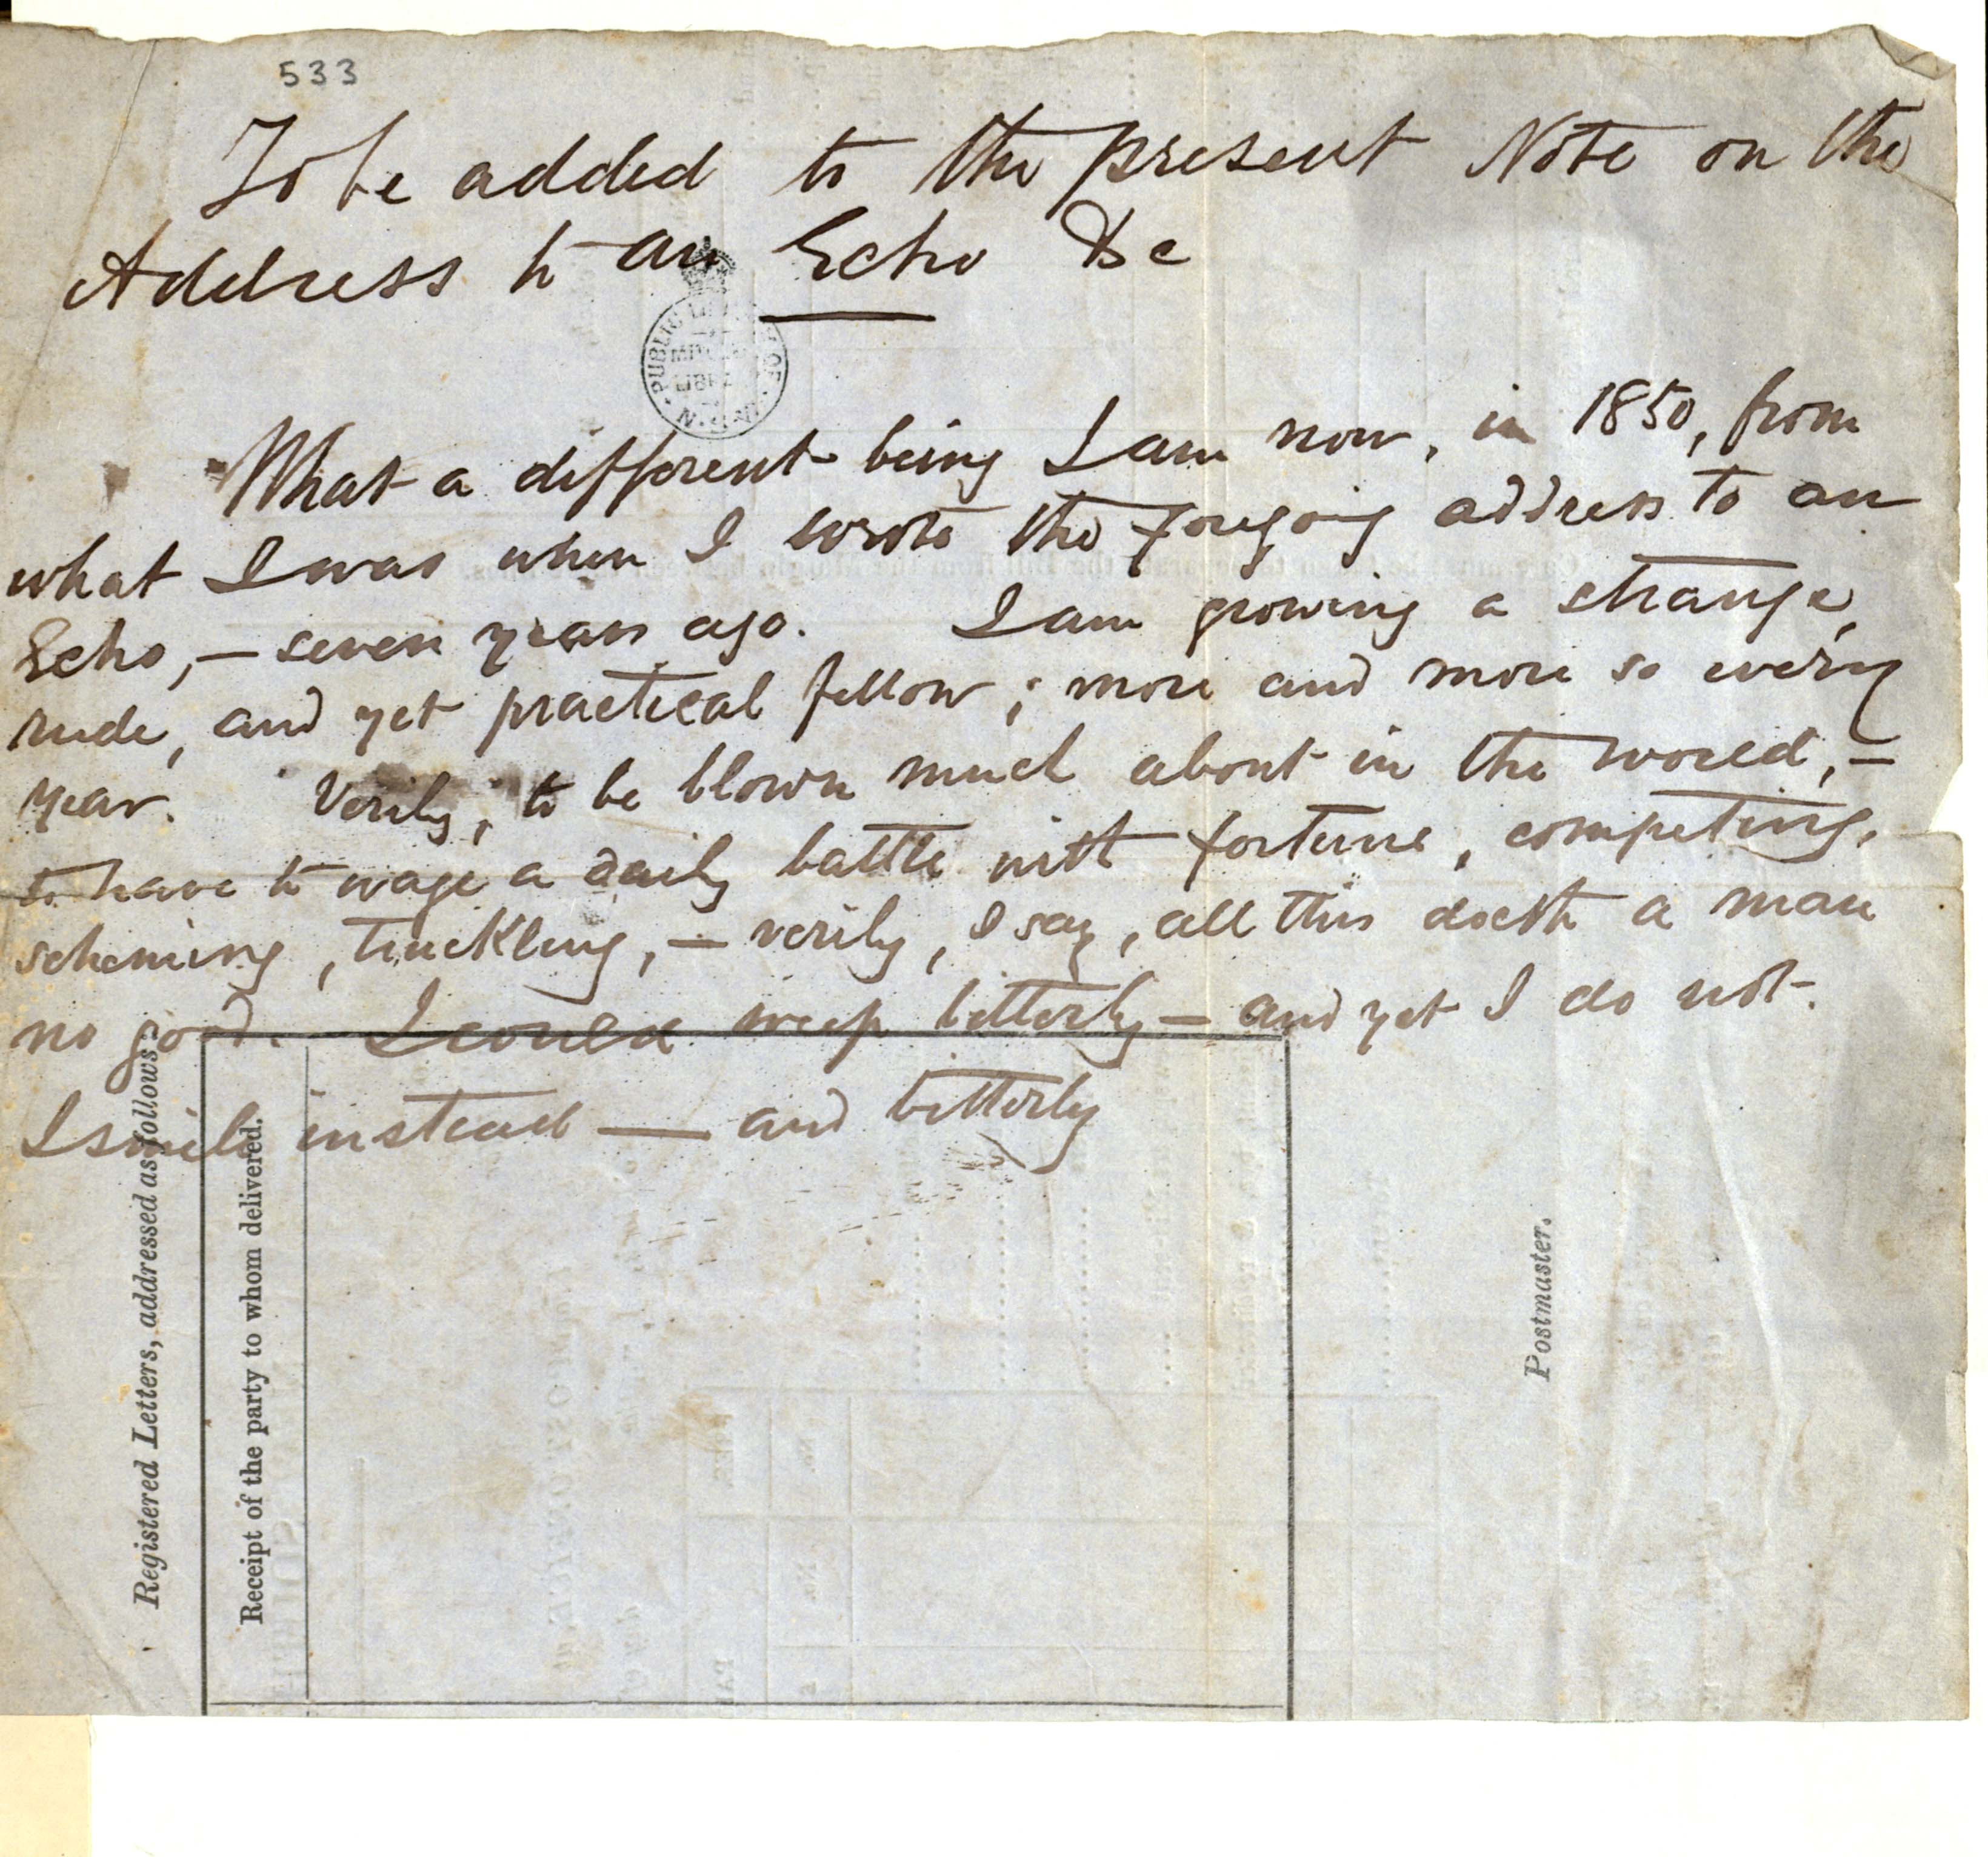 533
To be added to the present Note on the
Address to an Echo &c
PUBLIC LI OF N.S.W.
MITCHELL
LIBRARY
What a different being I am now, in 1850, from
what I was when I wrote the foregoing address to an
Echo, — seven years ago. I am growing a strange,
rude, and yet practical fellow; more and more so every
year. Verily, to be blown much about in the world, —
to have to wage a daily battle with fortune, competing,
scheming, truckling, — verily, I say, all this doeth a man
no good. I could weep bitterly — and yet I do not.
I smile instead — and bitterly
Registered Letters, addressed as follows:
Receipt of the party to whom delivered.
Postmaster.